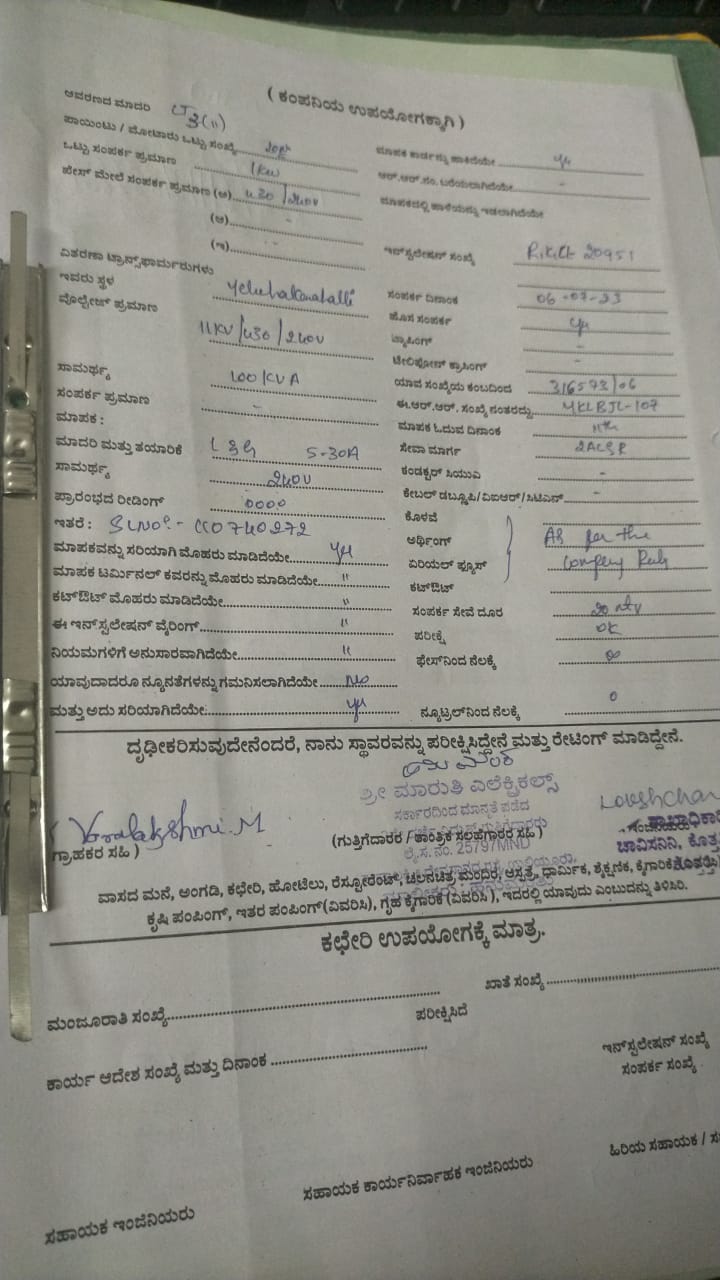 ( ಕಂಪನಿಯ ಉಪಯೋಗಕ್ಕಾಗಿ )
ಆವರಣದ ಮಾದರಿ
ಪಾಯಿಂಟು / ಮೋಟಾರು ಒಟ್ಟು ಸಂಖ್ಯೆ
ಒಟ್ಟು ಸಂಪರ್ಕ ಪ್ರಮಾಣ 1KW
ಫೇಸ್ ಮೇಲೆ ಸಂಪರ್ಕ ಪ್ರಮಾಣ (ಅ) 430/240V
(ಆ) -
(ಇ) -
ವಿತರಣಾ ಟ್ರಾನ್ಸ್‌ಫಾರ್ಮರುಗಳು
ಇವರು ಸ್ಥಳ Yeluhakanahalli
ವೊಲ್ಟೇಜ್ ಪ್ರಮಾಣ 11KV/430/240V
ಸಾಮರ್ಥ್ಯ 100/KVA
ಸಂಪರ್ಕ ಪ್ರಮಾಣ -
ಮಾಪಕ :
ಮಾದರಿ ಮತ್ತು ತಯಾರಿಕೆ L&G 5-30A
ಸಾಮರ್ಥ್ಯ 240V
ಪ್ರಾರಂಭದ ರೀಡಿಂಗ್ 0000
ಇತರೆ : SLNO:-
ಮಾಪಕವನ್ನು ಸರಿಯಾಗಿ ಮೊಹರು ಮಾಡಿದೆಯೇ yes
ಮಾಪಕ ಟರ್ಮಿನಲ್ ಕವರನ್ನು ಮೊಹರು ಮಾಡಿದೆಯೇ "
ಕಟ್‌ಔಟ್ ಮೊಹರು ಮಾಡಿದೆಯೇ "
ಈ ಇನ್‌ಸ್ಟಲೇಷನ್ ವೈರಿಂಗ್ "
ನಿಯಮಗಳಿಗೆ ಅನುಸಾರವಾಗಿದೆಯೇ "
ಯಾವುದಾದರೂ ನ್ಯೂನತೆಗಳನ್ನು ಗಮನಿಸಲಾಗಿದೆಯೇ No
ಮತ್ತು ಅದು ಸರಿಯಾಗಿದೆಯೇ: yes
ಮಾಪಕ ಕಾರ್ಡನ್ನು ಹಾಕಿದೆಯೇ yes
ಆರ್.ಆರ್.ನಂ. ಬರೆಯಲಾಗಿದೆಯೇ -
ಮಾಪಕದಲ್ಲಿ ಹಾಳೆಯನ್ನು ಇಡಲಾಗಿದೆಯೇ
ಇನ್‌ಸ್ಟಲೇಷನ್ ಸಂಖ್ಯೆ 20951
ಸಂಪರ್ಕ ದಿನಾಂಕ 06-07-23
ಹೊಸ ಸಂಪರ್ಕ yes
ಟ್ಯಾಪಿಂಗ್ -
ಟೆಲಿಫೋನ್ ಕ್ರಾಸಿಂಗ್ -
ಯಾವ ಸಂಖ್ಯೆಯ ಕಂಬದಿಂದ 316573/06
ಈ.ಆರ್.ಆರ್. ಸಂಖ್ಯೆ ನಂತರದ್ದು MKLBJL-107
ಮಾಪಕ ಓದುವ ದಿನಾಂಕ 11th
ಸೇವಾ ಮಾರ್ಗ 2ACSR
ಕಂಡಕ್ಟರ್ ಸಿಯುವಿ -
ಕೇಬಲ್ ಡಬ್ಲೂಪಿ/ವಿಐಆರ್/ಸಿಟಿಎಸ್ -
ಕೊಳವೆ
ಅರ್ಥಿಂಗ್ As per the
ಏರಿಯಲ್ ಫ್ಯೂಸ್ Company Rule
ಕಟ್‌ಔಟ್
ಸಂಪರ್ಕ ಸೇವೆ ದೂರ 20 mtr
ಪರೀಕ್ಷೆ OK
ಫೇಸ್‌ನಿಂದ ನೆಲಕ್ಕೆ ∞
ನ್ಯೂಟ್ರಲ್‌ನಿಂದ ನೆಲಕ್ಕೆ 0
ದೃಢೀಕರಿಸುವುದೇನೆಂದರೆ, ನಾನು ಸ್ಥಾವರವನ್ನು ಪರೀಕ್ಷಿಸಿದ್ದೇನೆ ಮತ್ತು ರೇಟಿಂಗ್ ಮಾಡಿದ್ದೇನೆ.
ಶ್ರೀ ಮಾರುತಿ ಎಲೆಕ್ಟ್ರಿಕಲ್ಸ್
ಸರ್ಕಾರದಿಂದ ಮಾನ್ಯತೆ ಪಡೆದ
Varalakshmi.M
ಗ್ರಾಹಕರ ಸಹಿ )
(ಗುತ್ತಿಗೆದಾರರ / ತಾಂತ್ರಿಕ ಸಲಹಗಾರರ ಸಹಿ )
ಲೈ.ಸ. ನಂ. 25797MND
ಶಾಖಾಧಿಕಾರಿ
ಚಾವಿಸನಿನಿ, ಕೊತ್ತ
ವಾಸದ ಮನೆ, ಅಂಗಡಿ, ಕಛೇರಿ, ಹೋಟೆಲು, ರೆಸ್ಟೋರೆಂಟ್, ಚಲನಚಿತ್ರ ಮಂದಿರ, ಆಸ್ಪತ್ರೆ, ಧಾರ್ಮಿಕ, ಶೈಕ್ಷಣಿಕ, ಕೈಗಾರಿಕೆ
ಕೃಷಿ ಪಂಪಿಂಗ್, ಇತರ ಪಂಪಿಂಗ್(ವಿವರಿಸಿ), ಗೃಹ ಕೈಗಾರಿಕೆ (ವಿವರಿಸಿ ), ಇದರಲ್ಲಿ ಯಾವುದು ಎಂಬುದನ್ನು ತಿಳಿಸಿರಿ.
ಕಛೇರಿ ಉಪಯೋಗಕ್ಕೆ ಮಾತ್ರ.
ಮಂಜೂರಾತಿ ಸಂಖ್ಯೆ
ಖಾತೆ ಸಂಖ್ಯೆ
ಪರೀಕ್ಷಿಸಿದೆ
ಕಾರ್ಯ ಆದೇಶ ಸಂಖ್ಯೆ ಮತ್ತು ದಿನಾಂಕ
ಇನ್‌ಸ್ಟಲೇಷನ್ ಸಂಖ್ಯೆ
ಸಂಪರ್ಕ ಸಂಖ್ಯೆ
ಸಹಾಯಕ ಇಂಜಿನಿಯರು
ಸಹಾಯಕ ಕಾರ್ಯನಿರ್ವಾಹಕ ಇಂಜಿನಿಯರು
ಹಿರಿಯ ಸಹಾಯಕ /